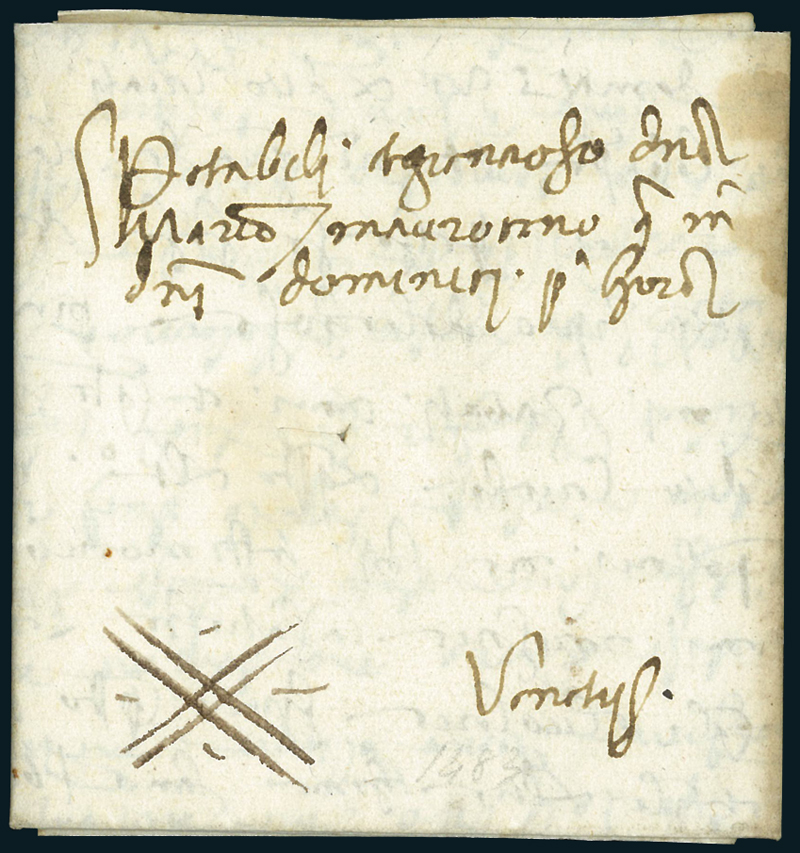 Spetabili et generoso dno
Marco mauroceno q m
dni dominici p honor
Venetijs.
1483